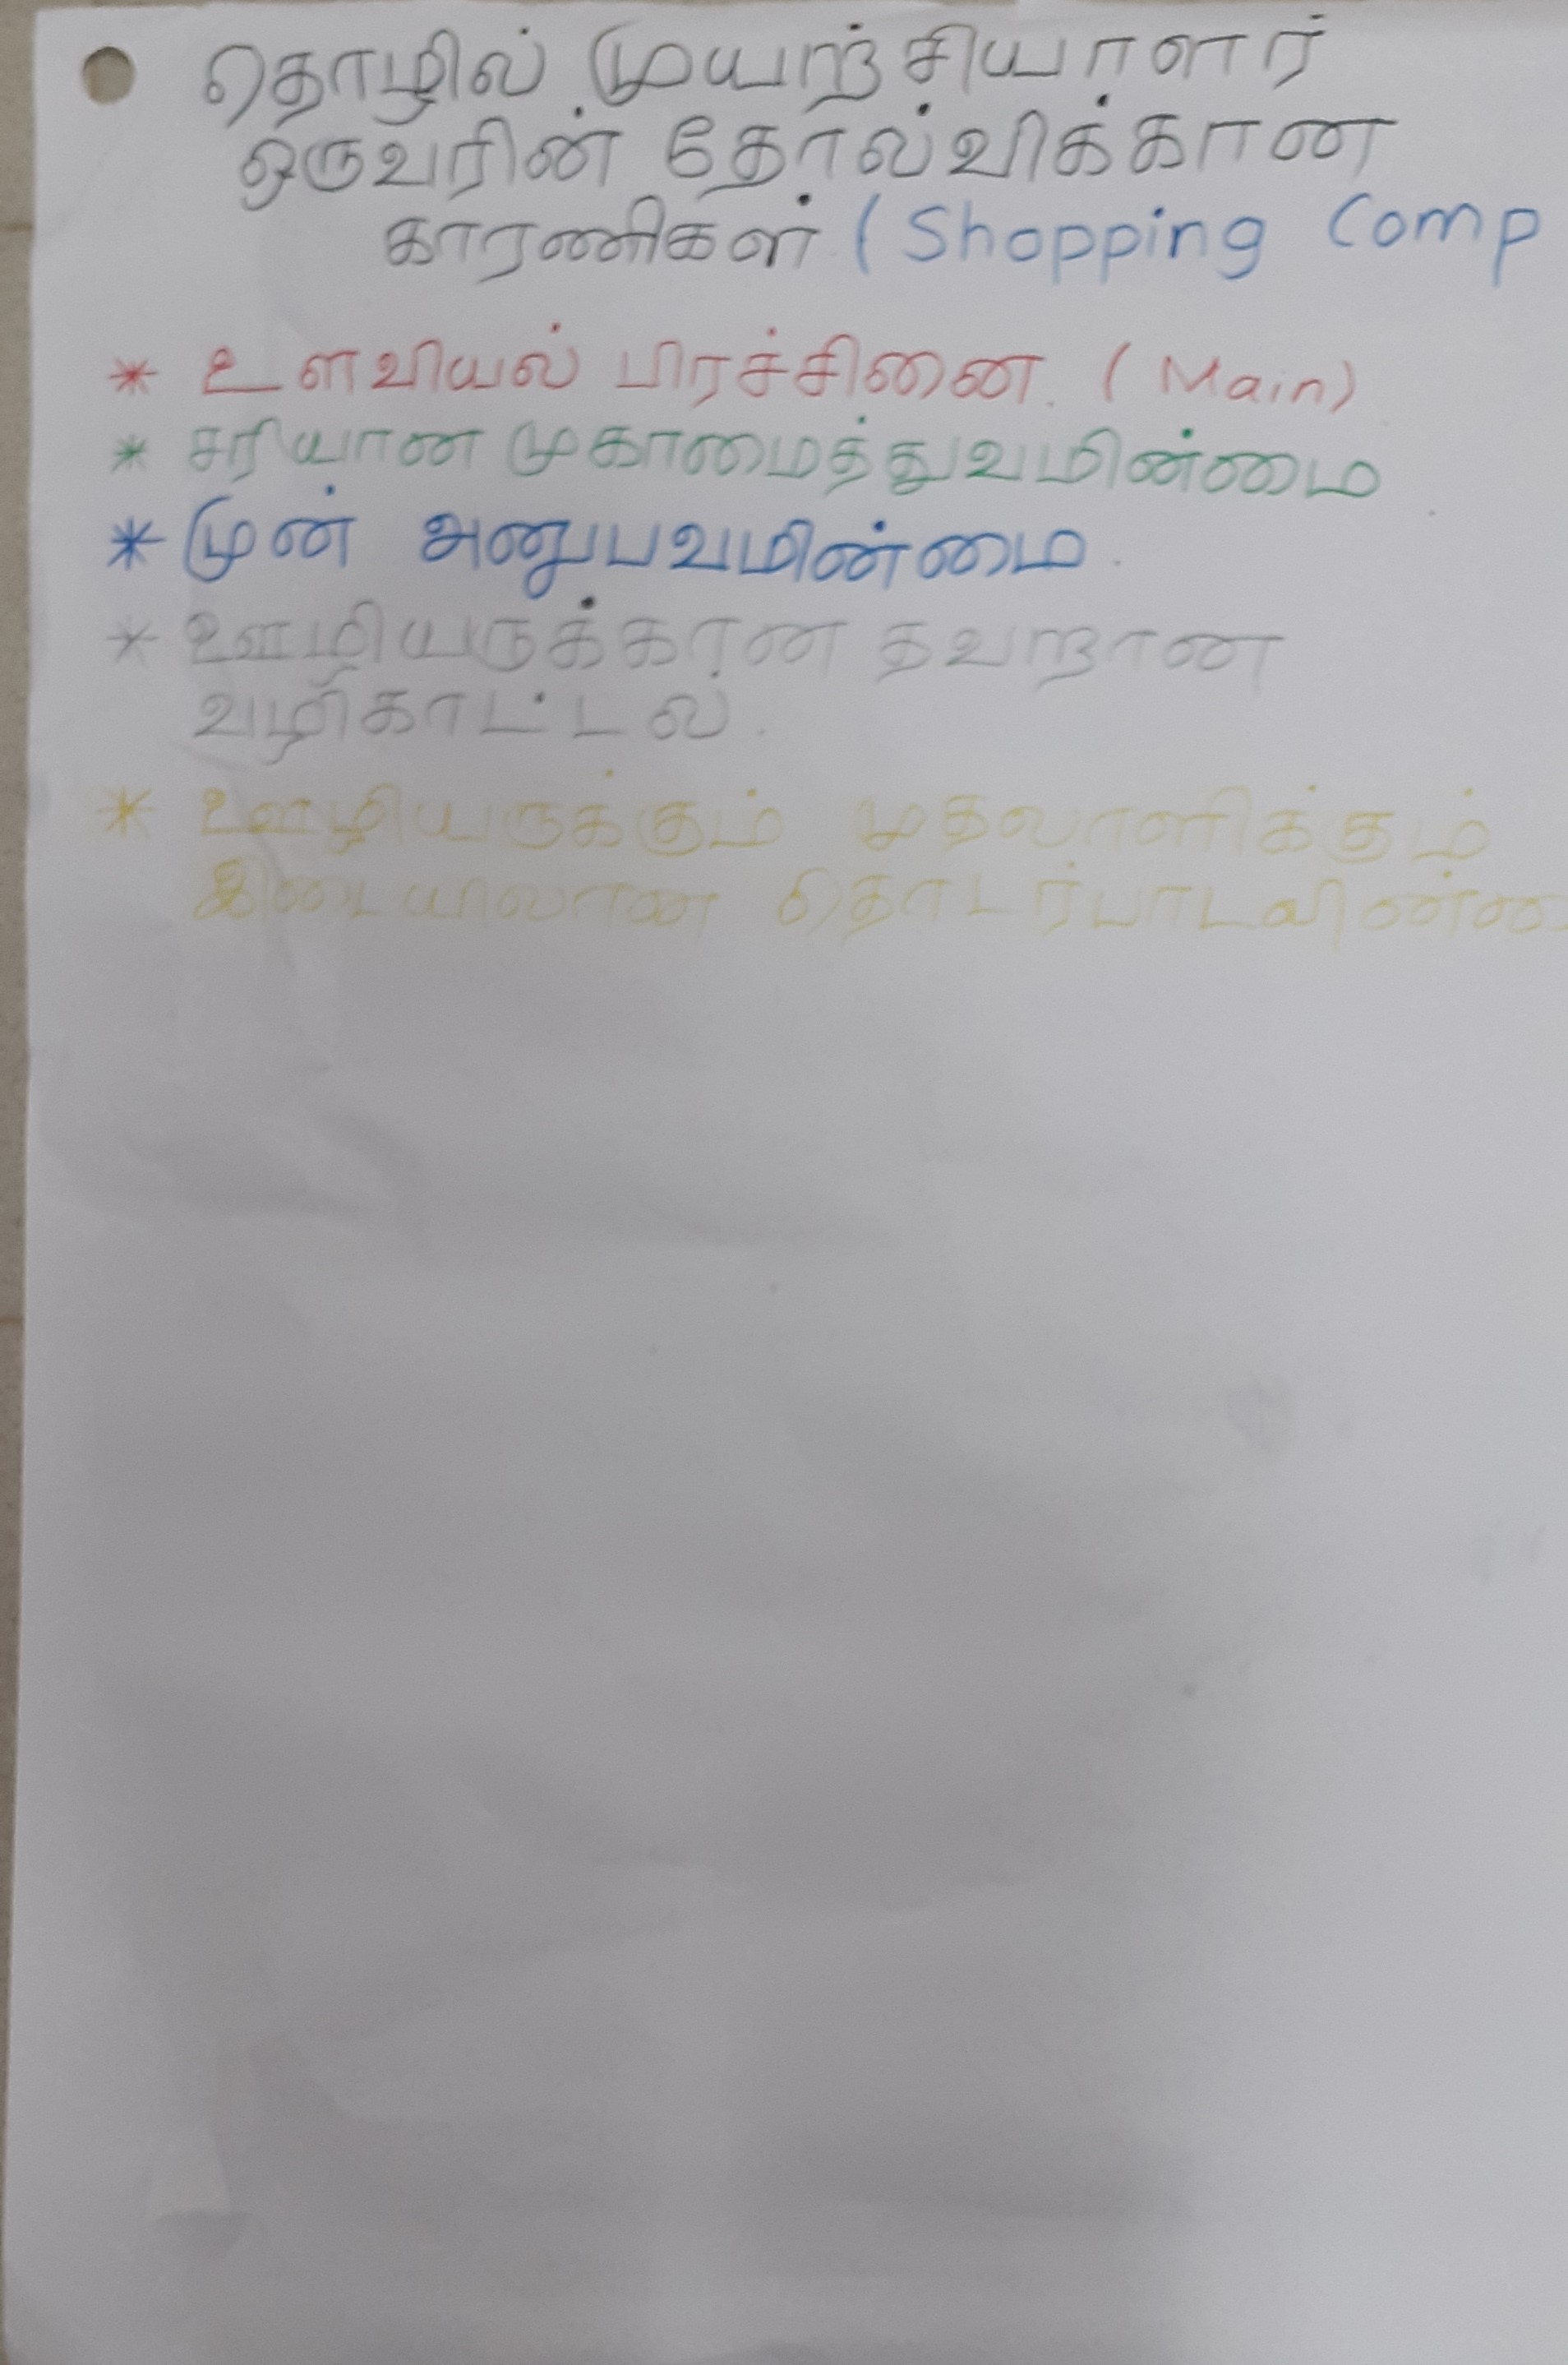 தொழில் முயற்சியாளர்
ஒருவரின் தோல்விக்கான
காரணிகள் (Shopping Comp
* உளவியல் பிரச்சினை. (Main)
* சரியான முகாமைத்துவமின்மை
* முன் அனுபவமின்மை.
* ஊழியருக்கான தவறான
வழிகாட்டல்.
* ஊழியருக்கும் முதலாளிக்கும்
இடையிலான